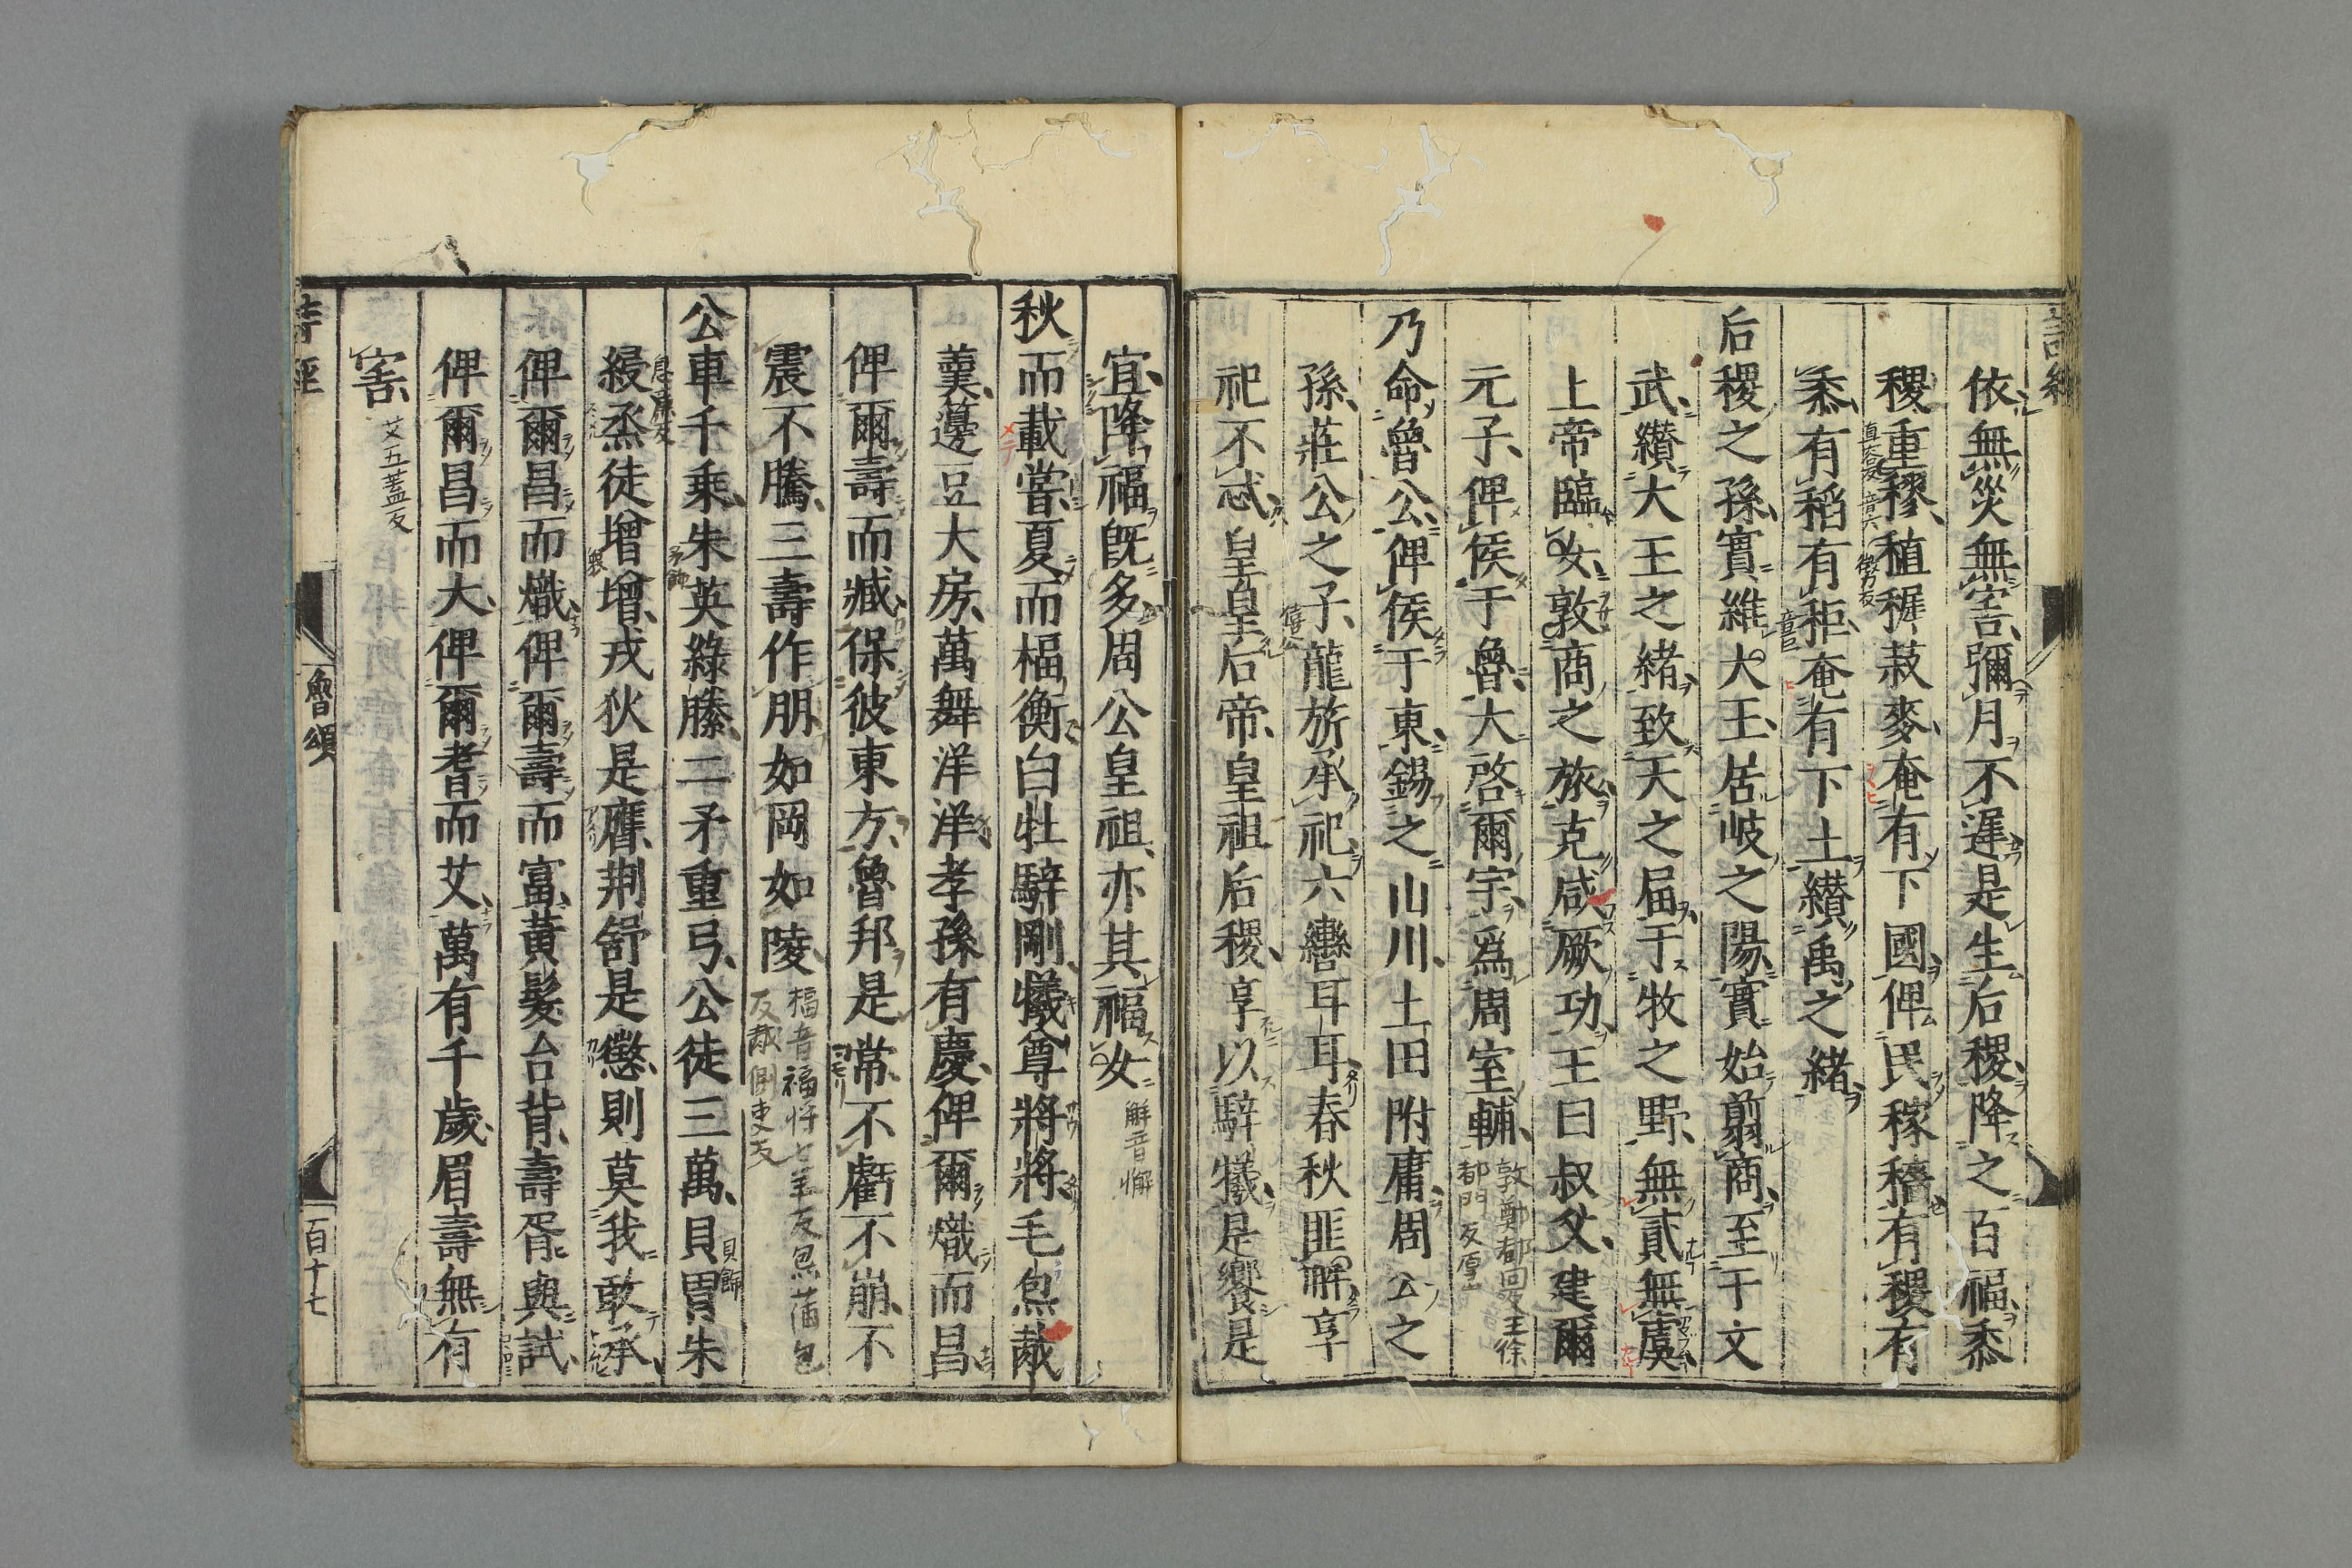 依無災無害彌月不遲是生后稷降之百福黍
稷重穋稙穉菽麥奄有下國俾民稼穡有稷有
黍有稻有秬奄有下土纘禹之緒
后稷之孫實維大王居岐之陽實始翦商至于文
武纘大王之緒致天之届于牧之野無貳無虞
上帝臨女敦商之旅克咸厥功王曰叔父建爾
元子俾侯于魯大啓爾宇爲周室輔
敦鄭都回反王徐
都門反厚也
乃命魯公俾侯于東錫之山川土田附庸周公之
孫莊公之子龍旂承祀六轡耳耳春秋匪解享
祀不忒皇皇后帝皇祖后稷享以騂犧是饗是
宜降福既多周公皇祖亦其福女
解音懈
秋而載嘗夏而楅衡白牡騂剛犧尊將將毛炰胾
羹籩豆大房萬舞洋洋孝孫有慶俾爾熾而昌
俾爾壽而臧保彼東方魯邦是常不虧不崩不
震不騰三壽作朋如岡如陵
楅音福將七羊反炰蒲包
反胾側吏反
公車千乘朱英綠縢二矛重弓公徒三萬貝冑朱
綅烝徒增增戎狄是膺荆舒是懲則莫我敢承
俾爾昌而熾俾爾壽而富黃髮台背壽胥與試
俾爾昌而大俾爾耆而艾萬有千歲眉壽無有
害
艾五蓋反
魯頌
百十七